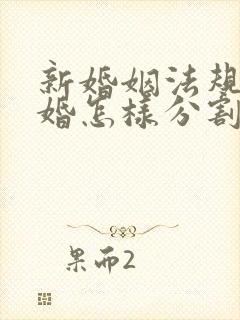 新婚姻法规
婚怎样分割
果而2